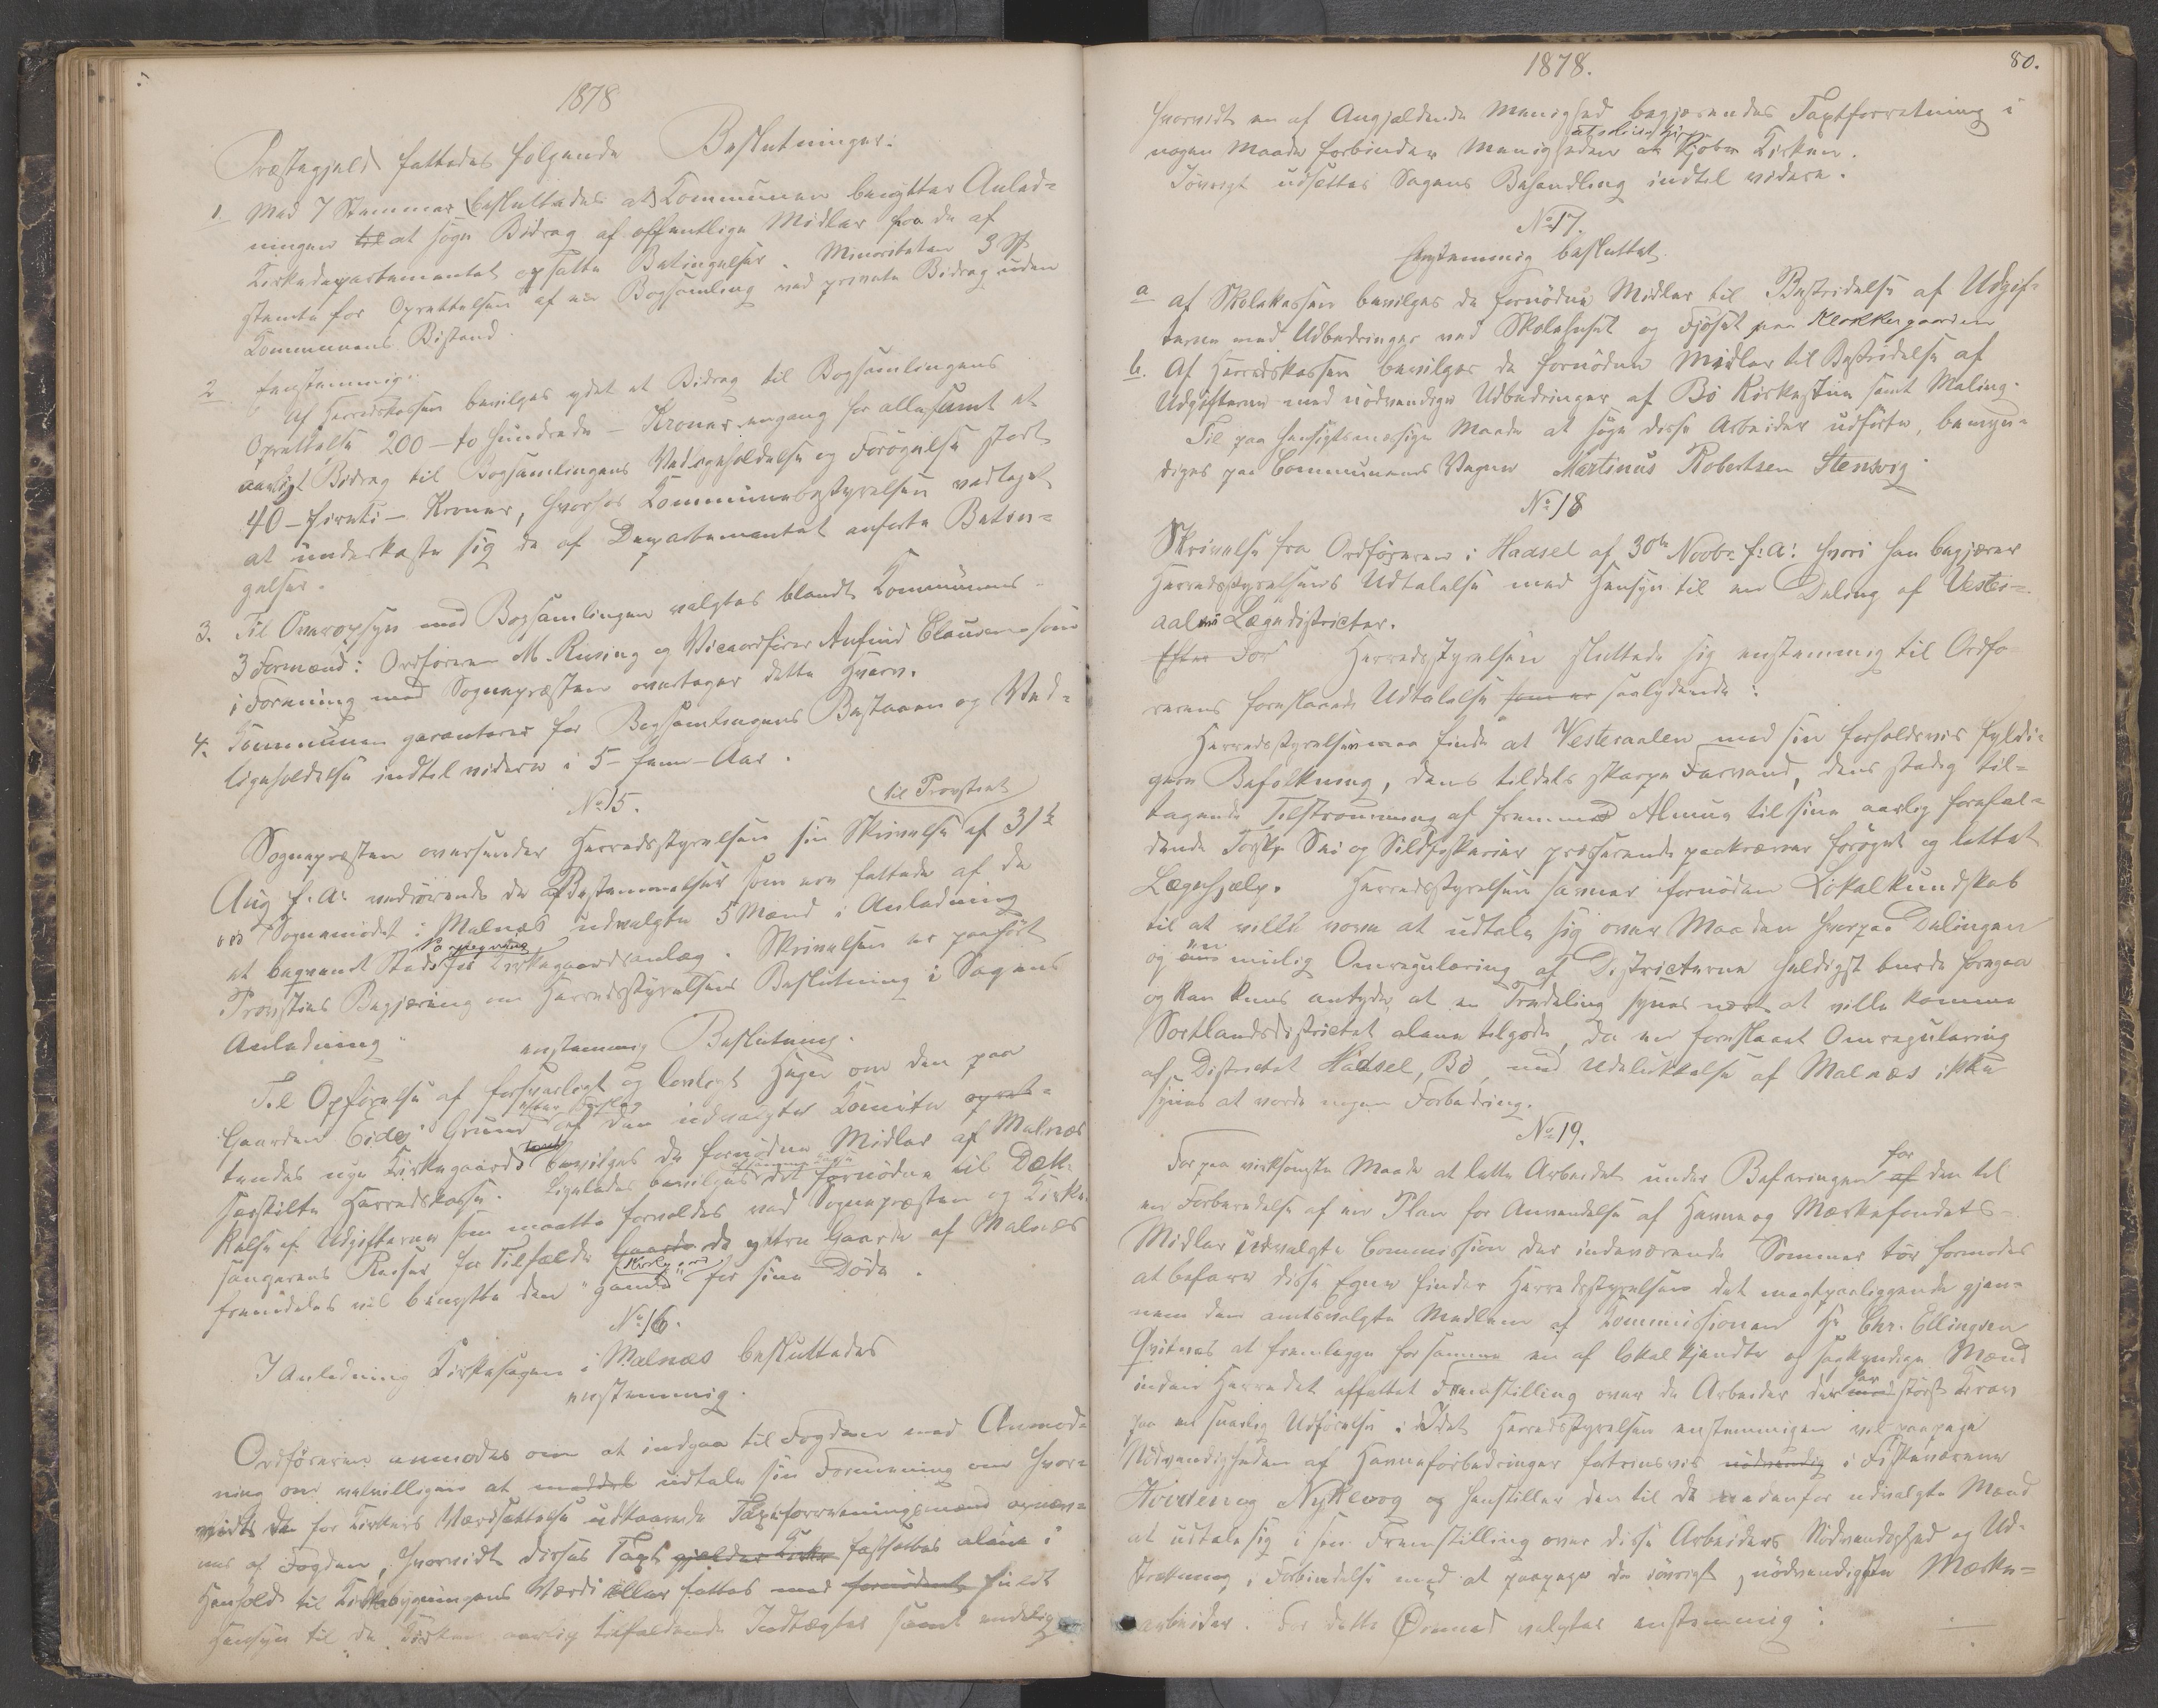 1878
Præstegjeld fattedes følgende Beslutninger:
1 Med 7 Stemmer besluttedes at Kommunen benytter Anled-
ningen til at søge Bidrag af offentlige Midler paa de af
Kirkedepartementet opsatte Betingelser. Minoriteten 3 St
stemte for Oprettelsen af en Bogsamling ved private Bidrag uden
Kommunens Bistand.
2 Enstemmig.
Af Herredskassen bevilges ydet et Bidrag til Bogsamlingens
Oprettelse 200 – to Hundrede – Kroner engang for alle samt et
aarligt Bidrag til Bogsamlingens Vedligeholdelse og Forøgelse stort
40 – fireti – Kroner, hvorhos Kommunebestyrelsen vedtaget
at underkaste sig de af Departementet anførte Betin-
gelser.
3. Til Overopsyn med Bogsamlingen valgtes blandt Kommunens
3 Formænd: Ordføreren M. Rusing og Viceordfører Anfind Clausen som
i Forening med Sognepræsten overtager dette Hverv.
4. Kommunen garanterer for Bogsamlingens Bestaaen og Ved-
ligeholdelse indtil videre i 5 – fem – Aar.
No 15.
til Provstiet
Sognepræsten oversender Herredsstyrelsen sin Skrivelse af 31te
Aug f. A. vedrørende de Bestemmelser som ere fattede af de
ved Sognemødet i Malnæs udvalgte 5 Mænd i Anledning
et beqvemt Sted for Kirkegaardsanlæg. Skrivelsen er paaført
Provstens Begjæring om Herredsstyrelsens Beslutning i Sagens
Anledning.
enstemmig Beslutning.
Til Opførelse af forsvarligt og lovligt Hegn om den paa
Gaarden Eides Grund af den udvalgte Komite opret-
efter Forslag
tendes nye Kirkegaard bevilges de fornødne Midler af Malnæs
særskilte Herredskasse. Ligeledes bevilges det fornødne til Dæk-
kelse af Udgifterne som maatte forvoldes ved Sognepræsten og Kirke-
sangerens Reiser for Tilfælde Gaarde de ydre Gaarde af Malnæs
fremdeles vil benytte den "gamle" for sine Døde.
No 16.
I Anledning Kirkesagen i Malnæs besluttedes
enstemmig.
Ordføreren anmodes om at indgaa til Fogden med Anmod-
ning om velvilligen at meddele udtale sin Formening om hvor-
vidt de for Kirkens Værdsættelse udstaaende Taxtforretningsmænd opnævn-
nes af Fogden, hvorvidt disses Taxt gjelder Kirken fastsættes alene i
Henhold til Kirkebygningens Værdi eller fattes med fornødent fuldt
Hensyn til de Kirken aarlig tilfaldende Indtægter samt endelig
1878.
80.
hvorvidt en af Angjældende Menighed begjærendes Taxtforretning i
nogen Maade forbinder Menigheden at Kjøbe Kirken.
Iøvrigt udsættes Sagens Behandling indtil videre.
No 17.
Enstemmig besluttet
a af Skolekassen bevilges de fornødne Midler til Bestridelse af Udgif-
terne med Udbedringer ved Skolehuset og Fjøset paa Klokkergaarden
b. Af Herredskassen bevilges de fornødne Midler til Bestridelse af
Udgifterne med nødvendige Udbedringer af Bø Kirkestue samt Maling.
Til paa hensigtsmæssige Maade at søge disse Arbeider udførte, bemyn-
diges paa Communens Vegne Martinus Robertsen Stensvig.
No 18
Skrivelse fra Ordføreren i Hadsel af 30te Novbr f: A: hvori han begjærer
Herredsstyrelsens Udtalelse med Hensyn til en Deling af Vester-
aalens Lægedistricter.
Efter For Herredsstyrelsen sluttede sig enstemmig til Ordfø-
rerens foreslaaede Udtalelse som er saalydende:
Herredsstyrelsen maa finde at Vesteraalen med sin forholdsvis fyldi-
gere Befolkning, dens tildels skarpe Farvand, dens stadig til-
tagende Tilstrømning af fremmed Almue til sine aarlig forefal-
dende Torsk Sei og Sildfiskerier præserende paakræver forøget og lettet
Lægehjælp. Herredsstyrelsen savner fornøden Lokalkundskab
til at ville vove at udtale sig over Maaden hvorpaa Delingen
og en mulig Omregulering af Districterne heldigst burde foregaa
og kan kun antyde, at en Tredeling synes nært at ville komme
Sortlandsdistrictet alene tilgode, da en foreslaaet Omregulering
af Districtet Hadsel, Bø, med Udelukkelse af Malnæs ikke
synes at vorde nogen Forbedring.
No 19.
For paa virksomste Maade at lette Arbeidet under Befaringen af for den til
en Forberedelse af en Plan for Anvendelse af Havne og Mærkefondets
Midler udvalgte Commission der indeværende Sommer tør formodes
at befare disse Egne finder Herredsstyrelsen det magtpaaliggende gjen-
nem den amtsvalgte Medlem af Kommissionen Hr Chr. Ellingsen
Qvitnæs at fremlægge for samme en af lokalkjendte og sagkyndige Mænd
inden Herredet affattet Fremstilling over de Arbeider der har størst Krav
paa en snarlig Udførelse i det Herredsstyrelsen enstemmigen vil paapege
Nødvendigheden af Havneforbedringer fortrinsvis nødvendig i Fiskeværene
Hovden og Nykevog og henstiller den til de nedenfor udvalgte Mænd
at udtale sig i sin Fremstilling over disse Arbeiders Nødvendighed og Ud-
strækning i Forbindelse med at paapege de iøvrigt nødvendigste Mærke-
arbeider. For dette Øiemed valgtes enstemmig: